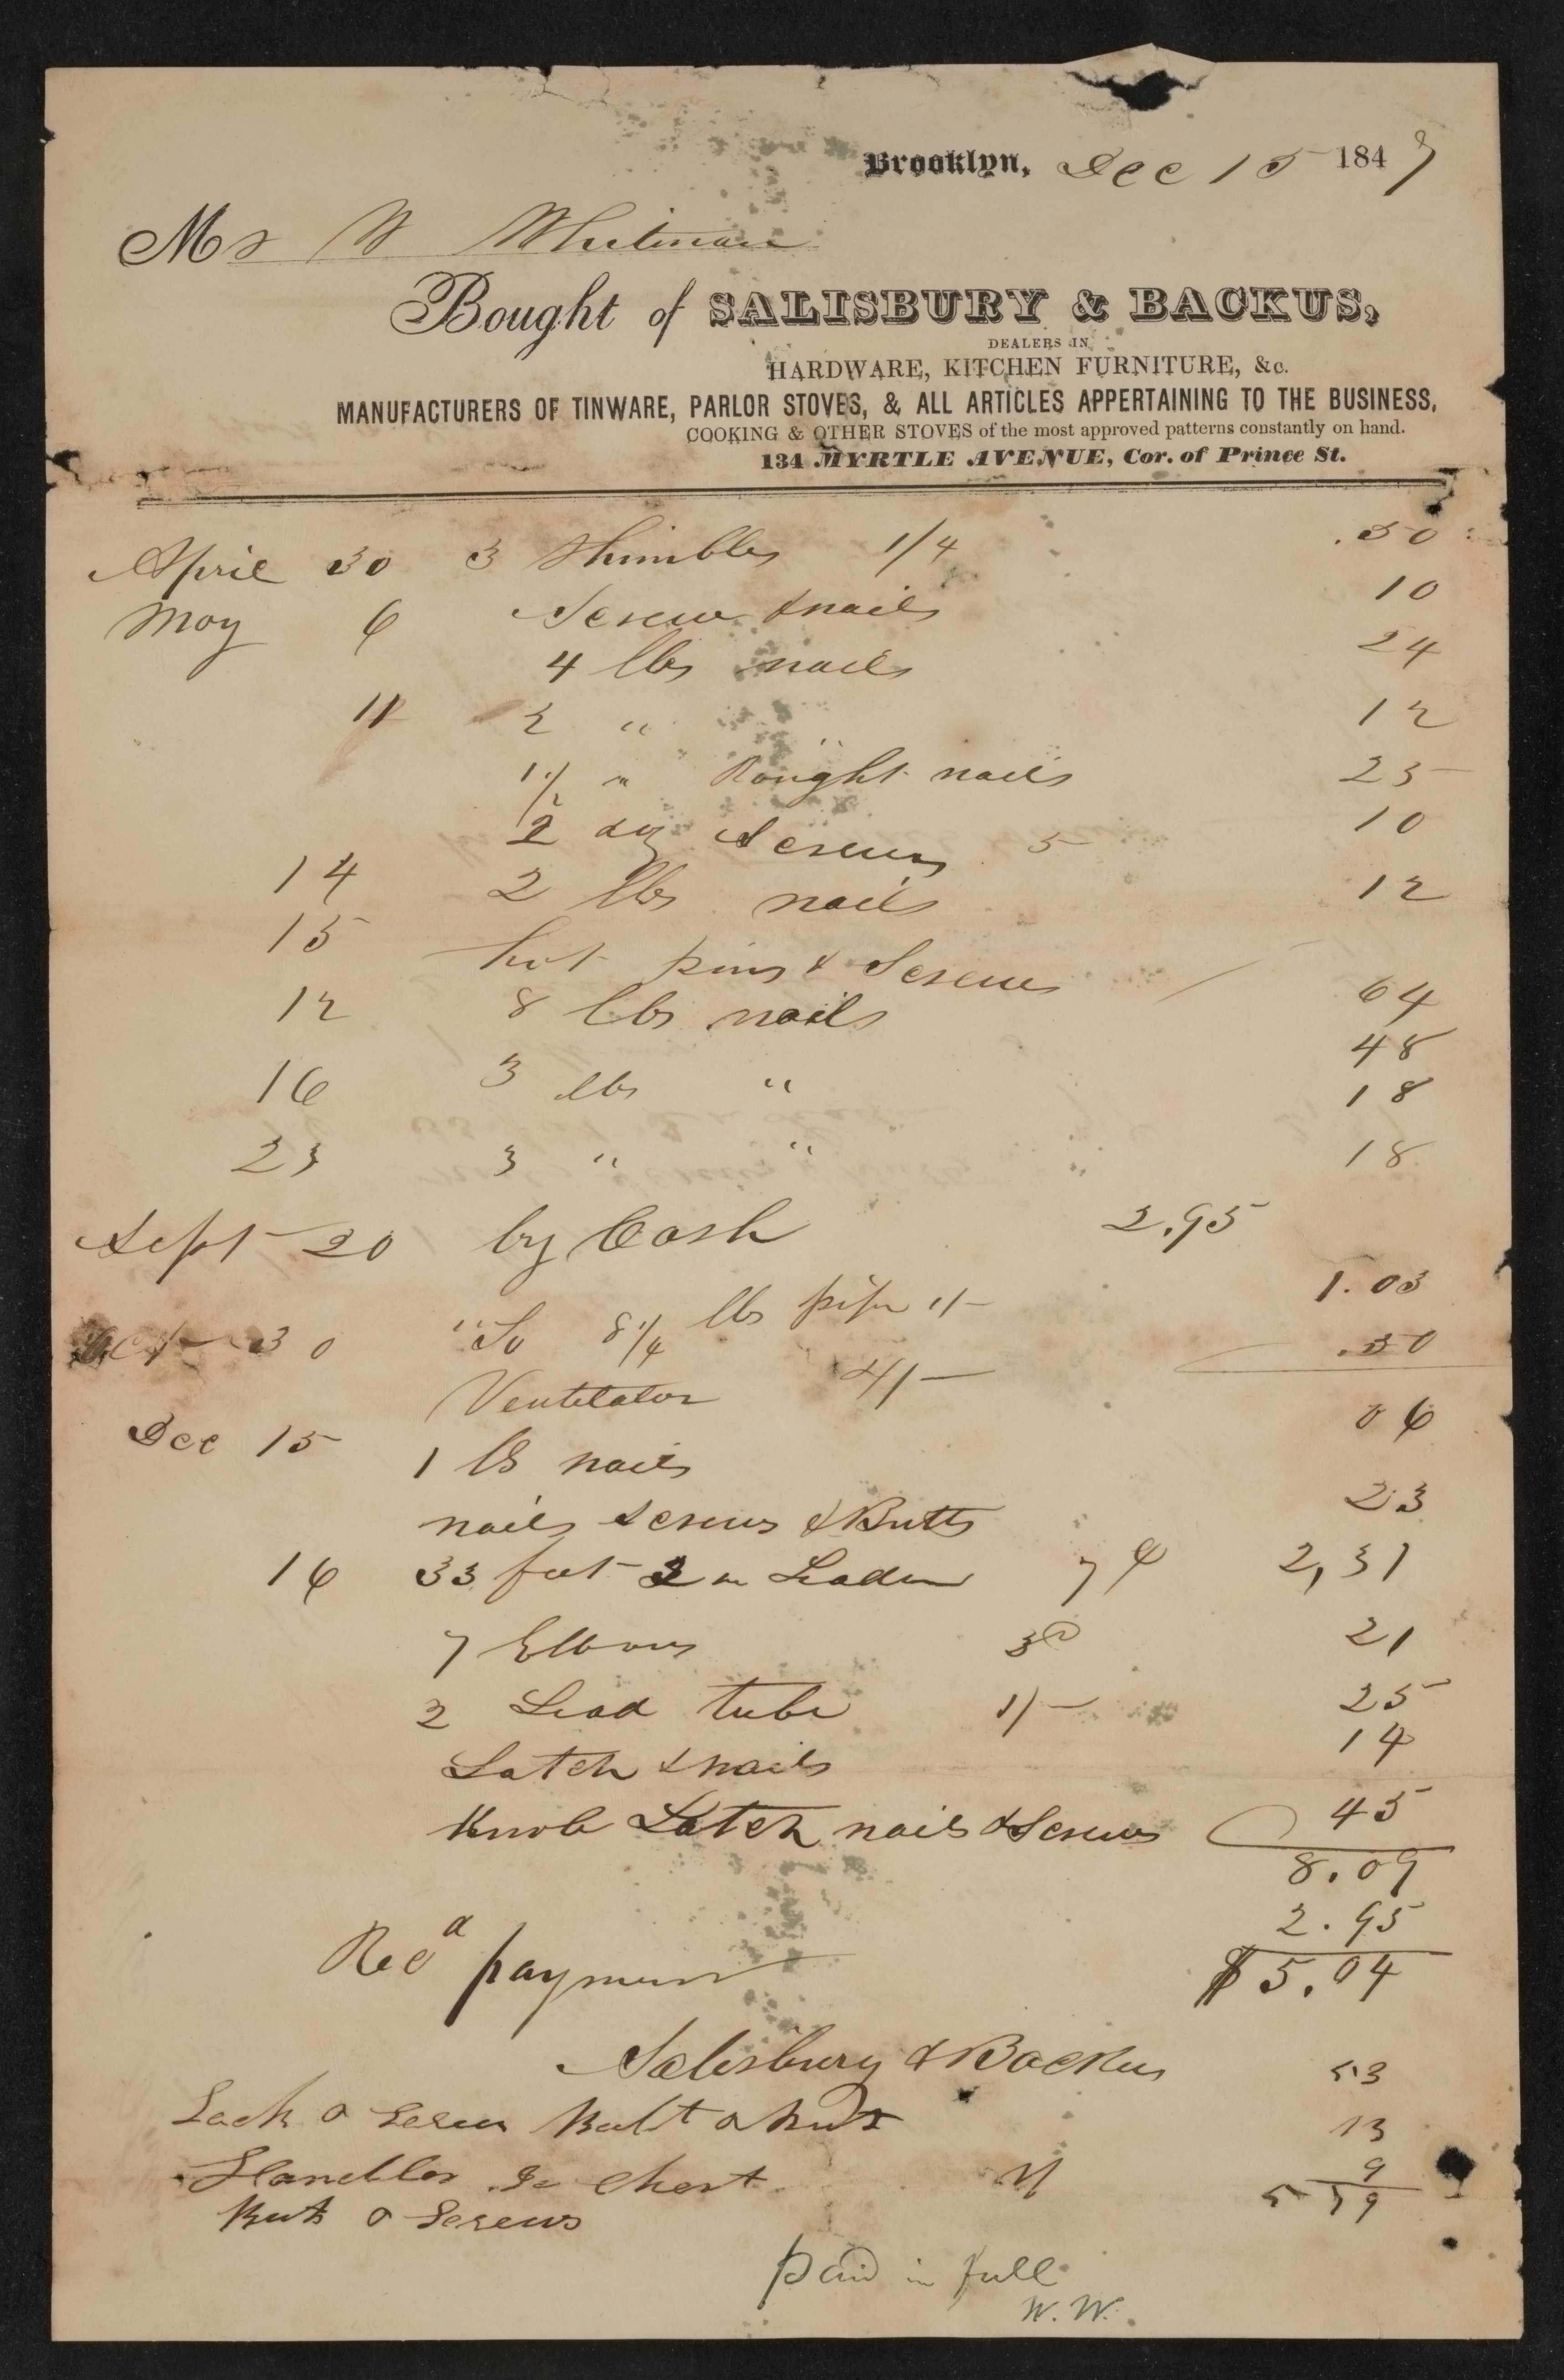 Brooklyn, Dec 15 1847
Mr W Whitman
Bought of SALISBURY & BACKUS,
DEALERS IN
HARDWARE, KITCHEN FURNITURE, &c.
MANUFACTURERS OF TINWARE, PARLOR STOVES, & ALL ARTICLES APPERTAINING TO THE BUSINESS,
COOKING & OTHER STOVES of the most approved patterns constantly on hand.
134 MYRTLE AVENUE, Cor. of Prince St.
April 30 3 Thimbles 1/4 .50
May 6 Screws & nails 10
4 lbs nails 24
11 2 " 12
1 1/2 " Rought nails 25
2 dz Screws 5 10
14 2 lbs nails 12
15 pins & Screws 64
12 8 lbs nails 48
16 3 lbs " 18
23 3 " " 18
Sept 20 by Cash 2.95
Oct 30 "To 8 1/4 lbs pipe 1/- 1.03
Ventilator 4/- .50
Dec 15 1 lb nails 06
nails screws & Butts 23
16 33 feet 2 in Leader 7 2,31
7 Elbows 3 21
2 Lead tube 1/- 25
Latch & nails 14
Knob Latch nails & Screws 45
8.09
2.95
$5.04
Recd payment
Salisbury & Backus
53
Lock & Screws Bolt & 13
Handles for Chest 9
Buts & Screws 5 79
paid in full
W. W.